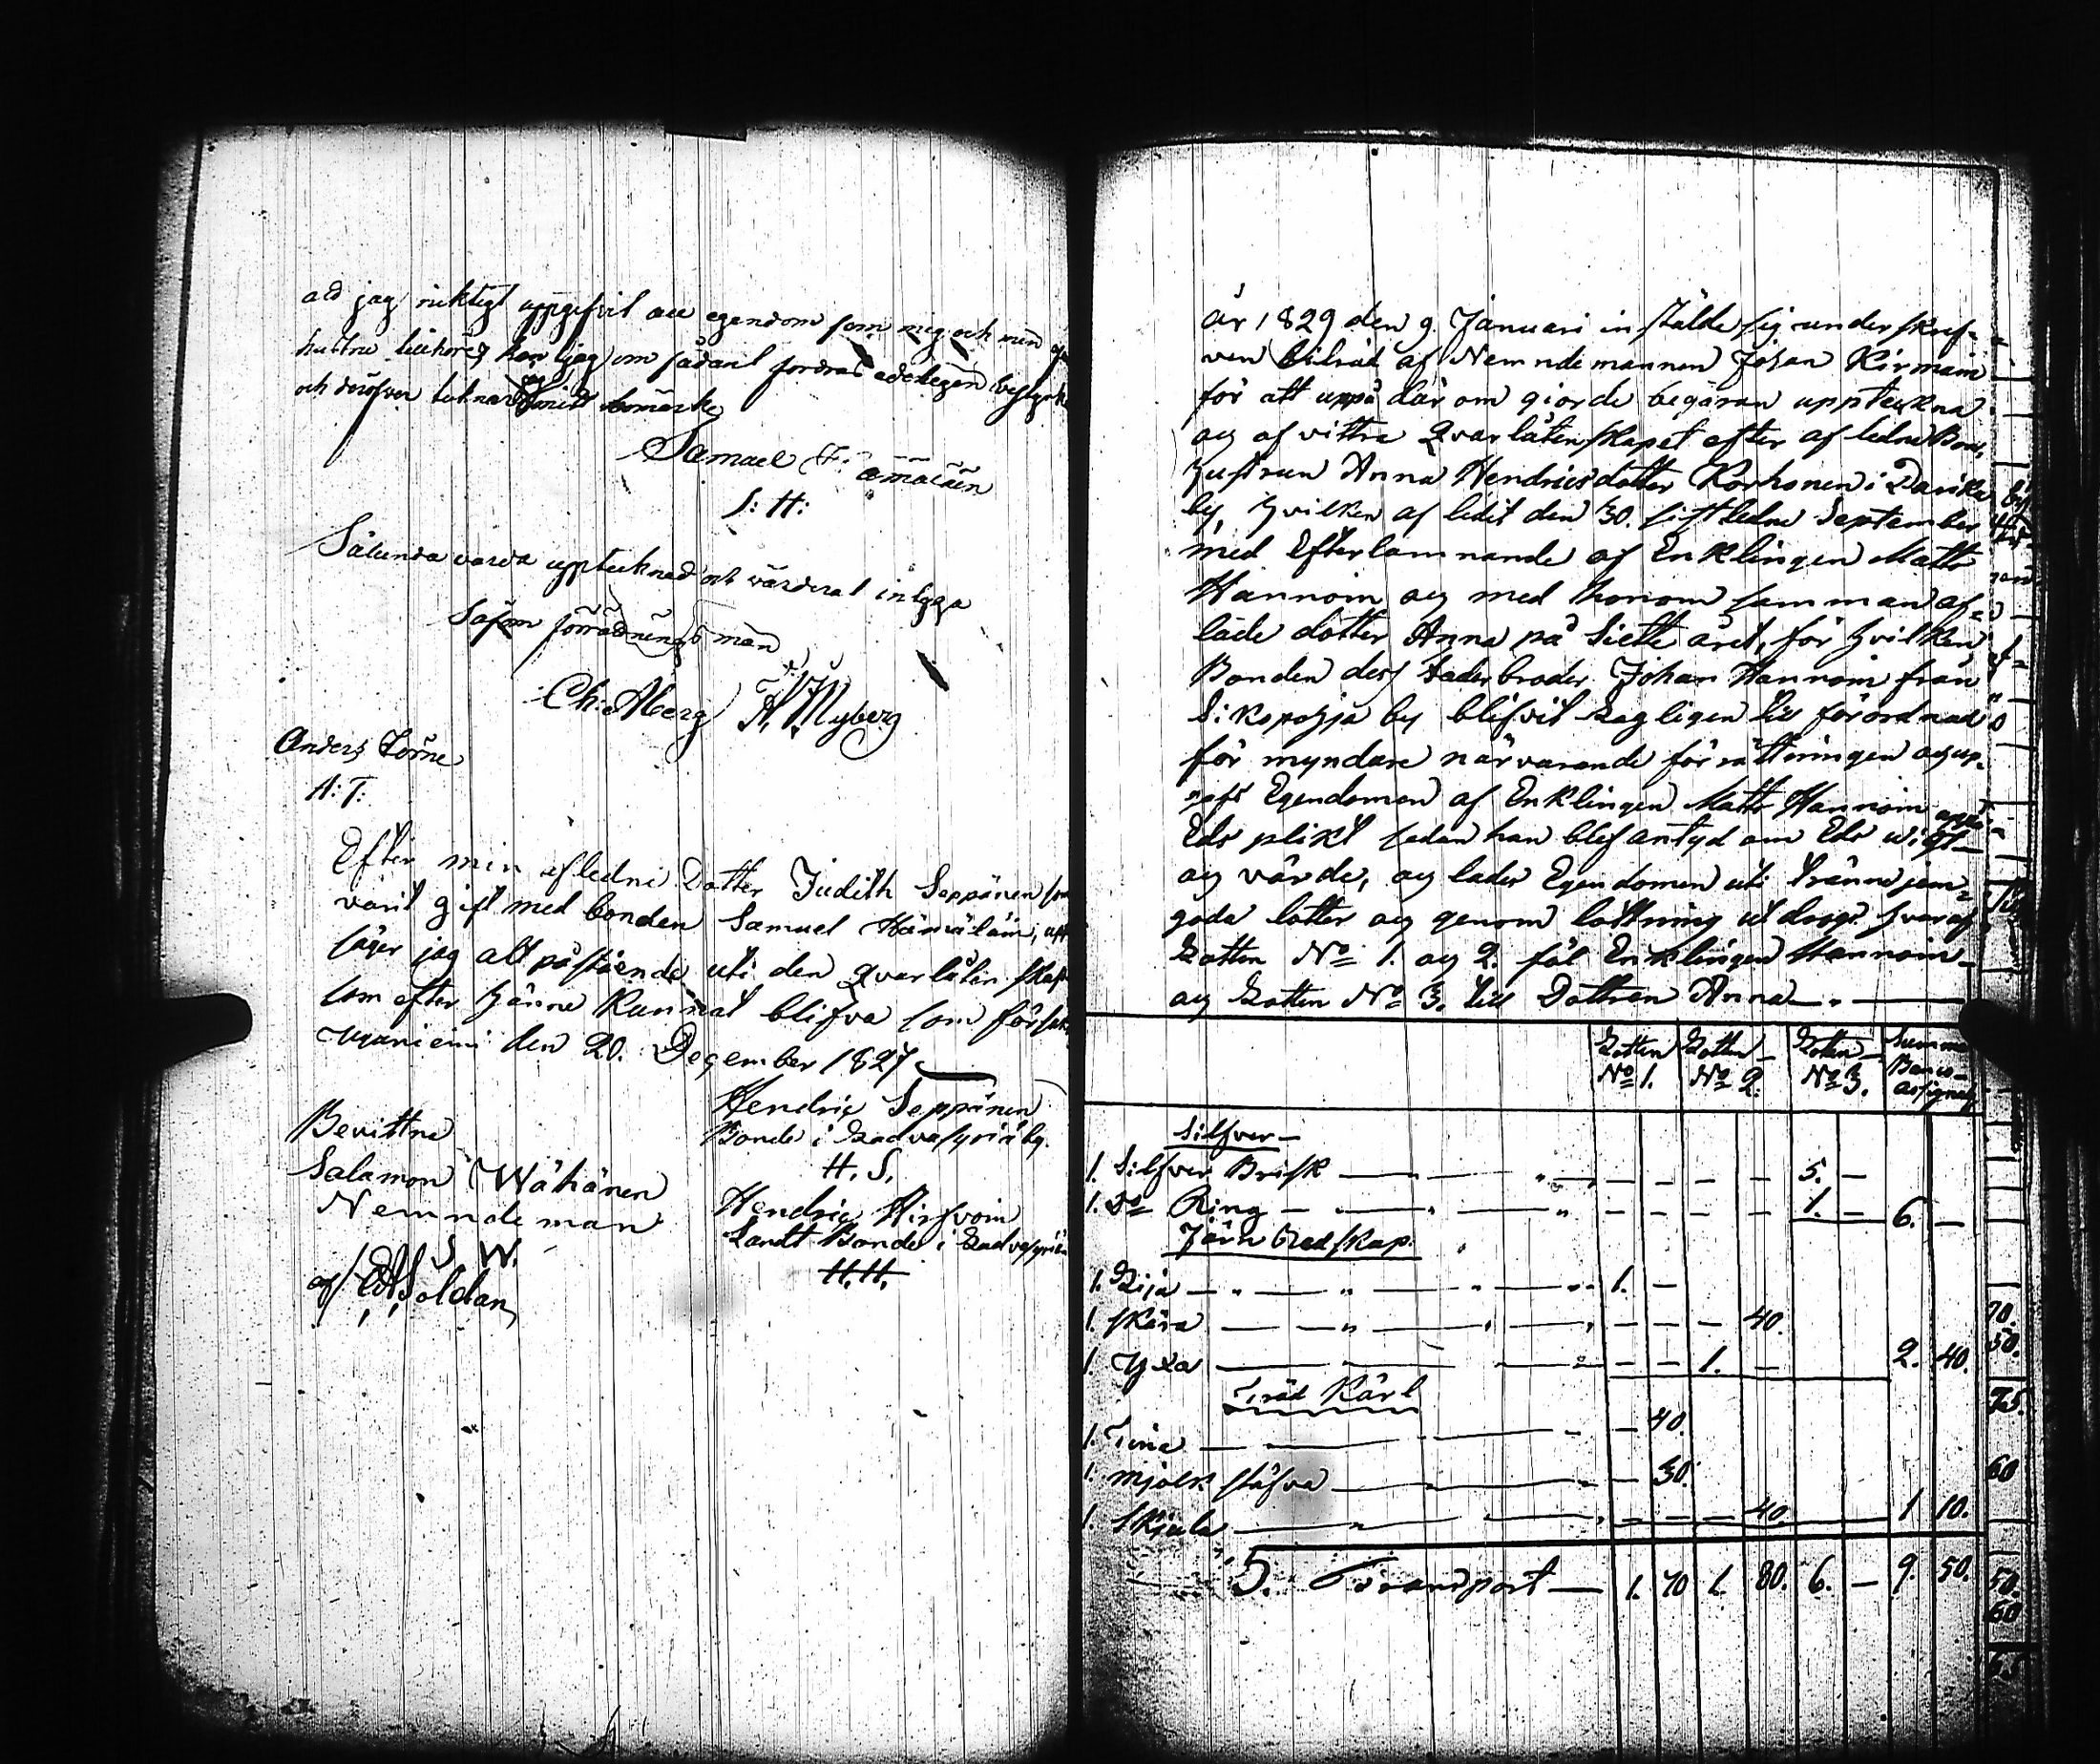 att jag riktigt uppgifvit all egendom som mig och min
hustru tillhörer, kan jag om sådant fordras edeligen
och deröfver teknar mitt bomärke
Samuel
S: H:
Sålunda vara uppteknad och värderat intyga
Såsom förrättnings män
Ch: Aberg A. Nyberg
Anders Törne
A: T:
Efter min afledne Dotter Judith Seppänen som
varit gift med bonden Samuel Hämäläin,
säger jag alt påstående uti den qvarlåten skap
som efter hänne kunnat blifva som
den 20. December 1827
Hendric Seppänen
Bonde i by.
H. S.
Bevittna
Salamon Wähänen
Nemndeman
S W.
Hendric Hirfvoin
Landt Bonde i
H. H.
af Soldan
år 1829 den 9. Januari instälde sig underskref-
ven biträd af Nemndemannen Johan Kirmain
för att uppå där om giorde begäran uppteckna
og afvittra Qvarlåtenskapet efter afledne Bond
hustrun Anna Hendricsdotter Korhonen i
by, hvilken afledit den 30. sistledne September
med Efterlamnande af Enklingen Matts
Hannoin og med honom samman af-
lade dotter Anna på siette året, för hvilken
Bonden des fader broder Johan Hannoin från
Sikopohja by blifvit Lagligen till förordnad
för myndare närvarande förrättningen og up-
gafs Egendomen af Enklingen Matts Hannoin
Eds plikt sedan han blef antyd om Eds wigt
og värde, og lades Egendomen uti tränne jem-
goda lotter og genom lottning utdrogs hvaraf
Lotten No 1. og 2. föl Enklingen Hannoin
og Lotten No 3. till Dottren Anna
Lotten No 1. Lotten No 2. Lotten No 3. Summa Banco assignat
Silfver
1. Silfver Brisk 5. —
1. Do Ring 1. — 6. —
Järn Redskap.
1. Lija 1. —
1. skära 40.
1. Yxa 1. — 2. 40.
Träd Kärl
1. Tina 40.
1. mjolk stäfva 30.
1. Skjula 40. 1 10.
5. Transport 1. 70 1. 80. 6. — 9. 50.